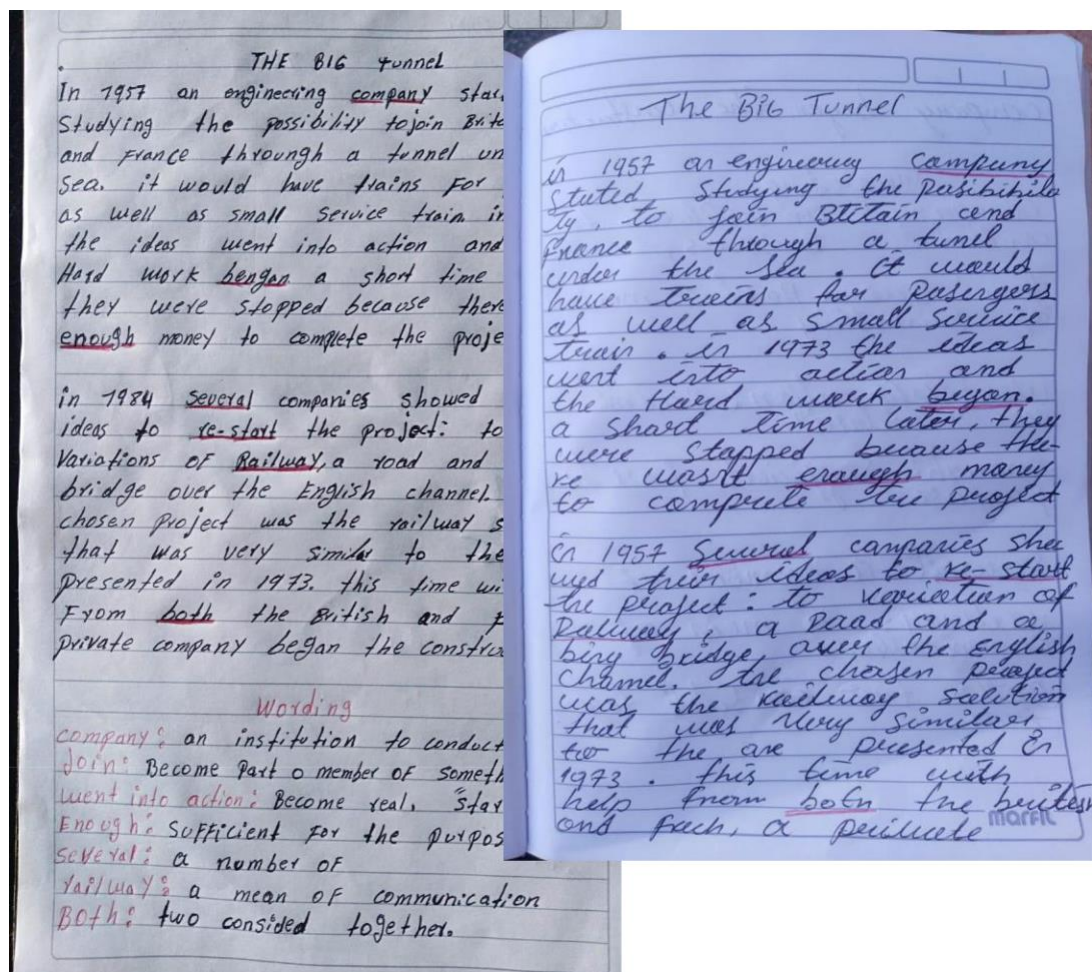 THE BIG tunnel
In 1957 an engineering company star
Studying the possibility tojoin Brita
and France throungh a tunnel un
Sea. it would have trains For
as well as small service train in
the ideas went into action and
Hard work bengan a short time
they were stopped because there
enough money to complete the proje
in 1984 several companies showed
ideas to re-start the project: to
Variations OF Railway, a road and
bridge over the English channel.
chosen project was the railway s
that was very similar to the
presented in 1973. this time wi
From both the British and F
private company began the constru
Wording
company: an institution to conduct
Join: Become Part o member OF someth
went into action: Become real, "star
Enough: SUFFicient For the purpos
several: a number OF
railway: a mean OF communication
Both: two consided together.
The BIG Tunnel
in 1957 an engineering company
stated studying the pasibihila
ty, to join Btitain, cend
France through a tunel
under the sea. It would
have trains for pasengers
as well as small service
train. in 1973 the ideas
went into action and
the Hard work began.
a short time later, they
were stopped because the-
re wasn't enough money
to comprete the project
in 1957 Several companies sho
wed their ideas to re-start
the project: to variation of
Railway, a Road and a
bing bridge, over the English
channel. the chosen project
was the Railway solution
that was very similar
to the are presented in
1973. this time with
help from both the british
and fech, a
MARFIL